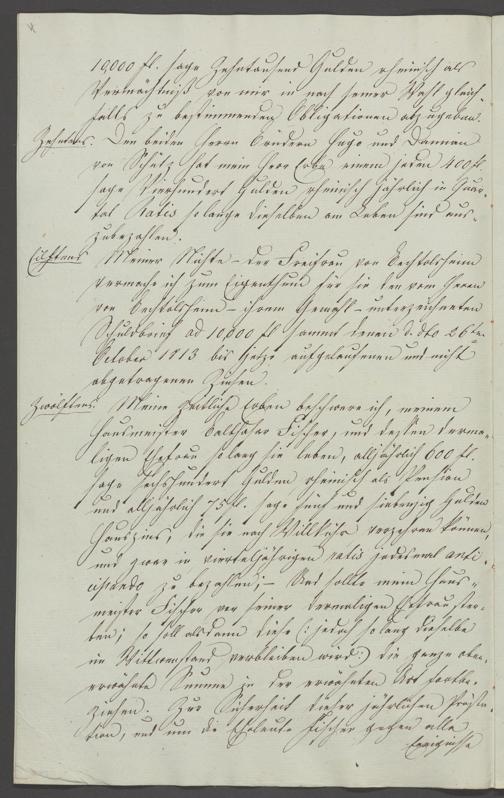 10,000 fl. sage Zehntausend Gulden rheinisch als
Vermächtniß von mir in nach seiner Wahl gleich-
falls zu bestimmenden Obligationen abzugeben.
Zehntens. Den beiden Herrn Brüdern Hugo und Damian
von Schütz hat mein Herr Erbe einem jeden 400 fl.
sage Vierhundert Gulden rheinisch jährlich in Quar-
tal Ratis so lange dieselben am Leben sind aus-
zubezahlen.
Eilftens Meiner Nichte – der Freifrau von Bechtolsheim
vermache ich zum Eigenthum für sie den vom Herrn
von Bechtolsheim – ihrem Gemahl – unterzeichneten
Schuldbrief ad 10,000 fl sammt denen d. dto 26ten
October 1813 bis jetzo aufgelaufenen und nicht
abgetragenen Zinsen.
Zwölftens. Meine Erben beschwere ich, meinem
Hausmeister Balthasar Fischer, und dessen derma-
ligen Ehefrau solang sie leben, alljährlich 600 fl.
sage Sechshundert Gulden rheinisch als Pension
und alljährlich 75 fl. sage fünf und siebenzig Gulden
Hauszins, die sie nach Willkühr verzehren können,
und zwar in vierteljährigen ratis jedesmal anti-
cipando zu bezahlen; – Und sollte mein Haus-
meister Fischer vor seiner dermaligen Ehefrau ster-
ben; so soll alsdann diese (: jedoch so lang dieselbe
im Wittwenstand verbleiben wird :) die ganze oben
erwähnte Summe in der erwähnten Art fortbe-
ziehen. Zur Sicherheit dieser jährlichen Prästa-
tion, und um die Eheleute Fischer gegen alle
Ereignisse